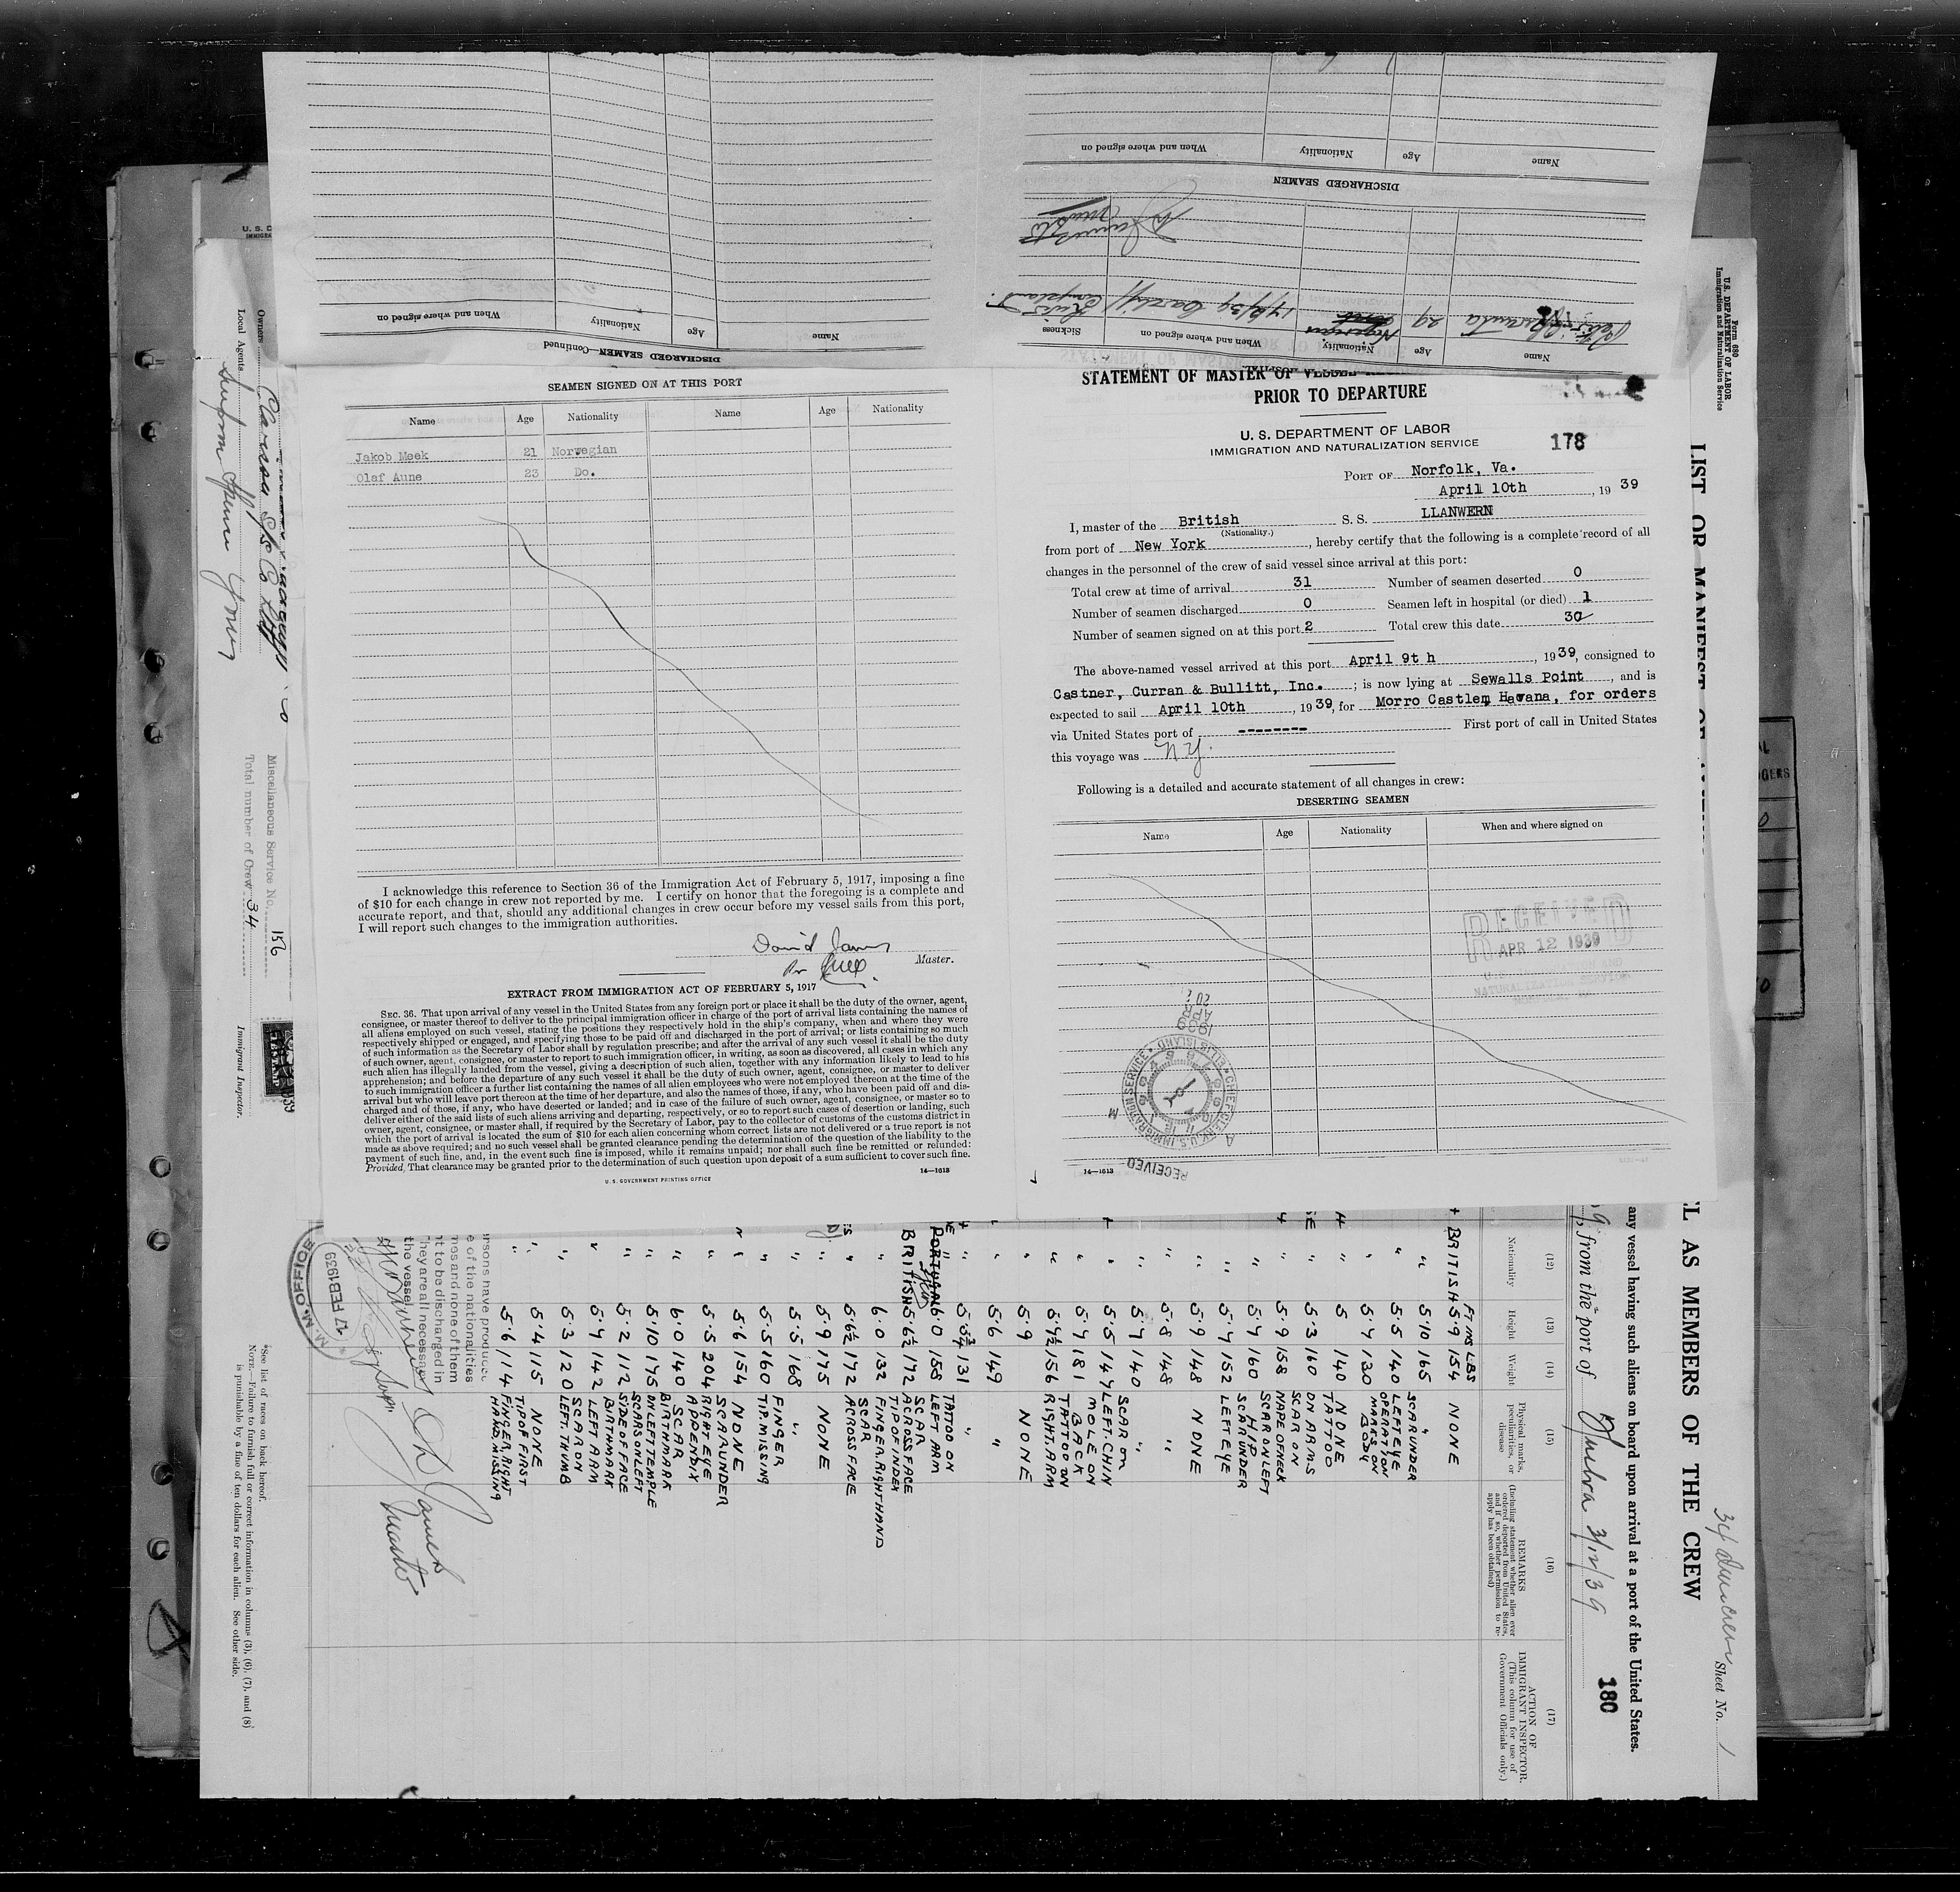 DISCHARGED SEAMEN—Continued
Name
Age
Nationality
When and where signed on
DISCHARGED SEAMEN
Name
Age
Nationality
When and where signed on
Name
Age
Nationality
When and where signed on
Sickness
29
Cardiff
SEAMEN SIGNED ON AT THIS PORT
Name Age Nationality Name Age Nationality
Jakob Meek 21 Norwegian
Olaf Aune 23 Do.
I acknowledge this reference to Section 36 of the Immigration Act of February 5, 1917, imposing a fine
of $10 for each change in crew not reported by me. I certify on honor that the foregoing is a complete and
accurate report, and that, should any additional changes in crew occur before my vessel sails from this port,
I will report such changes to the immigration authorities.
David James
Master.
EXTRACT FROM IMMIGRATION ACT OF FEBRUARY 5, 1917
SEC. 36. That upon arrival of any vessel in the United States from any foreign port or place it shall be the duty of the owner, agent,
consignee, or master thereof to deliver to the principal immigration officer in charge of the port of arrival lists containing the names of
all aliens employed on such vessel, stating the positions they respectively hold in the ship's company, when and where they were
respectively shipped or engaged, and specifying those to be paid off and discharged in the port of arrival; or lists containing so much
of such information as the Secretary of Labor shall by regulation prescribe; and after the arrival of any such vessel it shall be the duty
of such owner, agent, consignee, or master to report to such immigration officer, in writing, as soon as discovered, all cases in which any
such alien has illegally landed from the vessel, giving a description of such alien, together with any information likely to lead to his
apprehension; and before the departure of any such vessel it shall be the duty of such owner, agent, consignee, or master to deliver
to such immigration officer a further list containing the names of all alien employees who were not employed thereon at the time of the
arrival but who will leave port thereon at the time of her departure, and also the names of those, if any, who have been paid off and dis-
charged and of those, if any, who have deserted or landed; and in case of the failure of such owner, agent, consignee, or master so to
deliver either of the said lists of such aliens arriving and departing, respectively, or so to report such cases of desertion or landing, such
owner, agent, consignee, or master shall, if required by the Secretary of Labor, pay to the collector of customs of the customs district in
which the port of arrival is located the sum of $10 for each alien concerning whom correct lists are not delivered or a true report is not
made as above required; and no such vessel shall be granted clearance pending the determination of the question of the liability to the
payment of such fine, and, in the event such fine is imposed, while it remains unpaid; nor shall such fine be remitted or refunded:
Provided, That clearance may be granted prior to the determination of such question upon deposit of a sum sufficient to cover such fine.
14—1613
U.S. GOVERNMENT PRINTING OFFICE
STATEMENT OF MASTER OF VESSEL
PRIOR TO DEPARTURE
U. S. DEPARTMENT OF LABOR
IMMIGRATION AND NATURALIZATION SERVICE
178
PORT OF Norfolk, Va.
April 10th, 1939
I, master of the British S. S. LLANWERN
(Nationality.)
from port of New York, hereby certify that the following is a complete record of all
changes in the personnel of the crew of said vessel since arrival at this port:
Total crew at time of arrival 31 Number of seamen deserted 0
Number of seamen discharged 0 Seamen left in hospital (or died) 1
Number of seamen signed on at this port 2 Total crew this date 32
The above-named vessel arrived at this port April 9t h, 1939, consigned to
Castner, Curran & Bullitt, Inc.; is now lying at Sewalls Point, and is
expected to sail April 10th, 1939, for Morro Castlem Havana, for orders
via United States port of -------- First port of call in United States
this voyage was N.Y.
Following is a detailed and accurate statement of all changes in crew:
DESERTING SEAMEN
Name Age Nationality When and where signed on
RECEIVED
APR 12 1939
1939
APR
20
CHIEF CLERK U.S. IMMIGRATION SERVICE ELLIS ISLAND
RECEIVED
14—1613
Form 680
U.S. DEPARTMENT OF LABOR
Immigration and Naturalization Service
Sheet No. 1
LIST OR MANIFEST OF
AS MEMBERS OF THE CREW
any vessel having such aliens on board upon arrival at a port of the United States.
from the port of
180
(12) (13) (14) (15) (16) (17)
Nationality
Height
Weight
Physical marks, peculiarities, or disease
REMARKS
(Including statement whether alien ever ordered deported from United States, and if so, whether permission to re-apply has been obtained)
ACTION OF IMMIGRANT INSPECTOR
(This column for use of Government Officials only.)
FT INS LBS
BRITISH 5·9 154 NONE
" 5·10 165 "
" 5·5 140 SCAR UNDER LEFT EYE
" 5·4 130 OPERATION MARKS ON BODY
" 5 140 NONE
" 5·3 160 TATTOO ON ARMS
" 5·9 158 SCAR ON NAPE OF NECK
" 5·4 160 SCAR ON LEFT HIP
" 5·4 152 SCAR UNDER LEFT EYE
" 5·9 148 NONE
" 5·8 148 "
" 5·4 140 "
" 5·5 147 SCAR ON LEFT. CHIN
" 5·4 181 MOLE ON BACK
" 5·4½ 156 TATTOO ON RIGHT. ARM
" 5·9 NONE
" 5·6 149 "
" 5·5¾ 131 "
PORTUGAL 6·0 158 TATTOO ON LEFT ARM
BRITISH 5·6½ 172 SCAR ACROSS FACE
" 6·0 132 TIP OF INDEX FINGER. RIGHT HAND
" 5·6½ 172 SCAR ACROSS FACE
" 5·9 175 NONE
" 5·5 168 "
" 5·5 160 FINGER TIP. MISSING
" 5·6 154 NONE
" 5·5 204 SCAR UNDER RIGHT EYE
" 6·0 140 APPENDIX SCAR
" 5·10 175 BIRTHMARK ON LEFT TEMPLE
" 5·2 112 SCARS ON LEFT SIDE OF FACE
" 5·4 142 BIRTHMARK LEFT ARM
" 5·3 120 SCAR ON LEFT. THUMB
" 5·4 115 NONE
" 5·6 114 TIP OF FIRST FINGER, RIGHT HAND, MISSING
rsons have produce
e of the nationalities
nos and none of them
t to be discharged in
hey are all necessary
the vessel
James
Master
M.M. OFFICE
17 FEB 1939
*See list of races on back hereof.
NOTE.—Failure to furnish full or correct information in columns (3), (6), (7), and (8)
is punishable by a fine of ten dollars for each alien. See other side.
Owners
Local Agents
Miscellaneous Service No. 156
Total number of Crew 34
Immigrant Inspector.
U. S. D
IMMIGRA